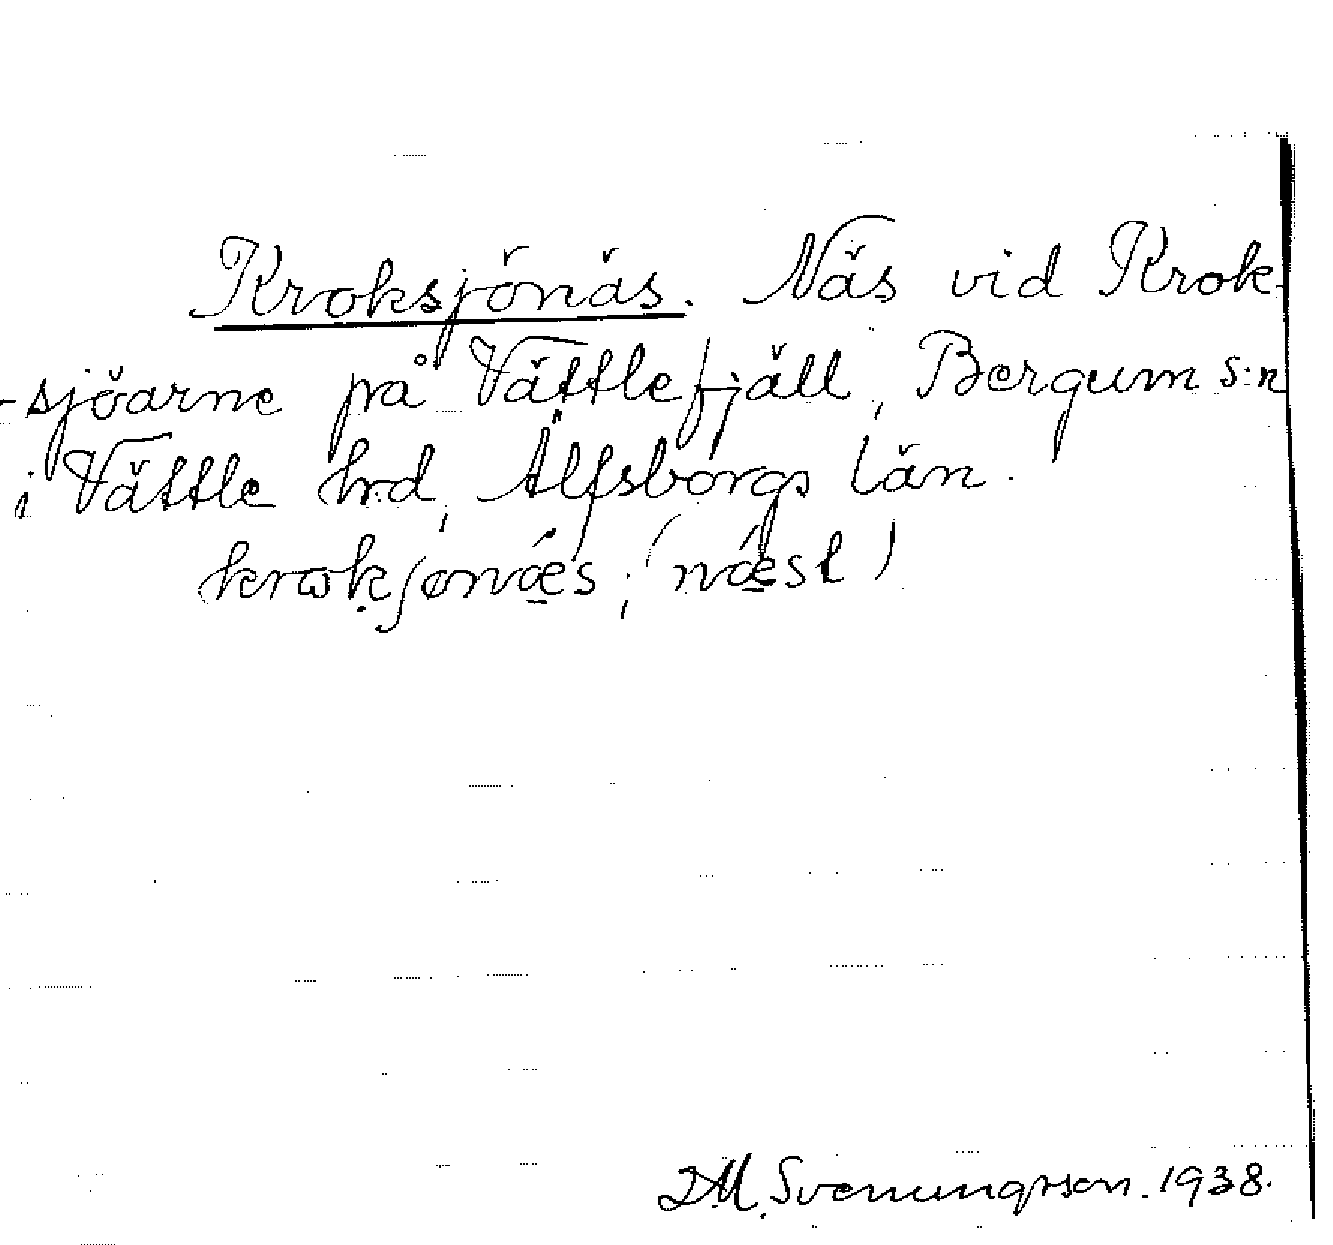 Kroksjönäs. Näs vid Krok-
-sjöarne på Vättlefjäll, Bergum s:n
i Vättle hrd, Älfsborgs län.
krωk̨ʃɵnǽ̱s, (nǽ̱st)
M. Svenungsson. 1938.